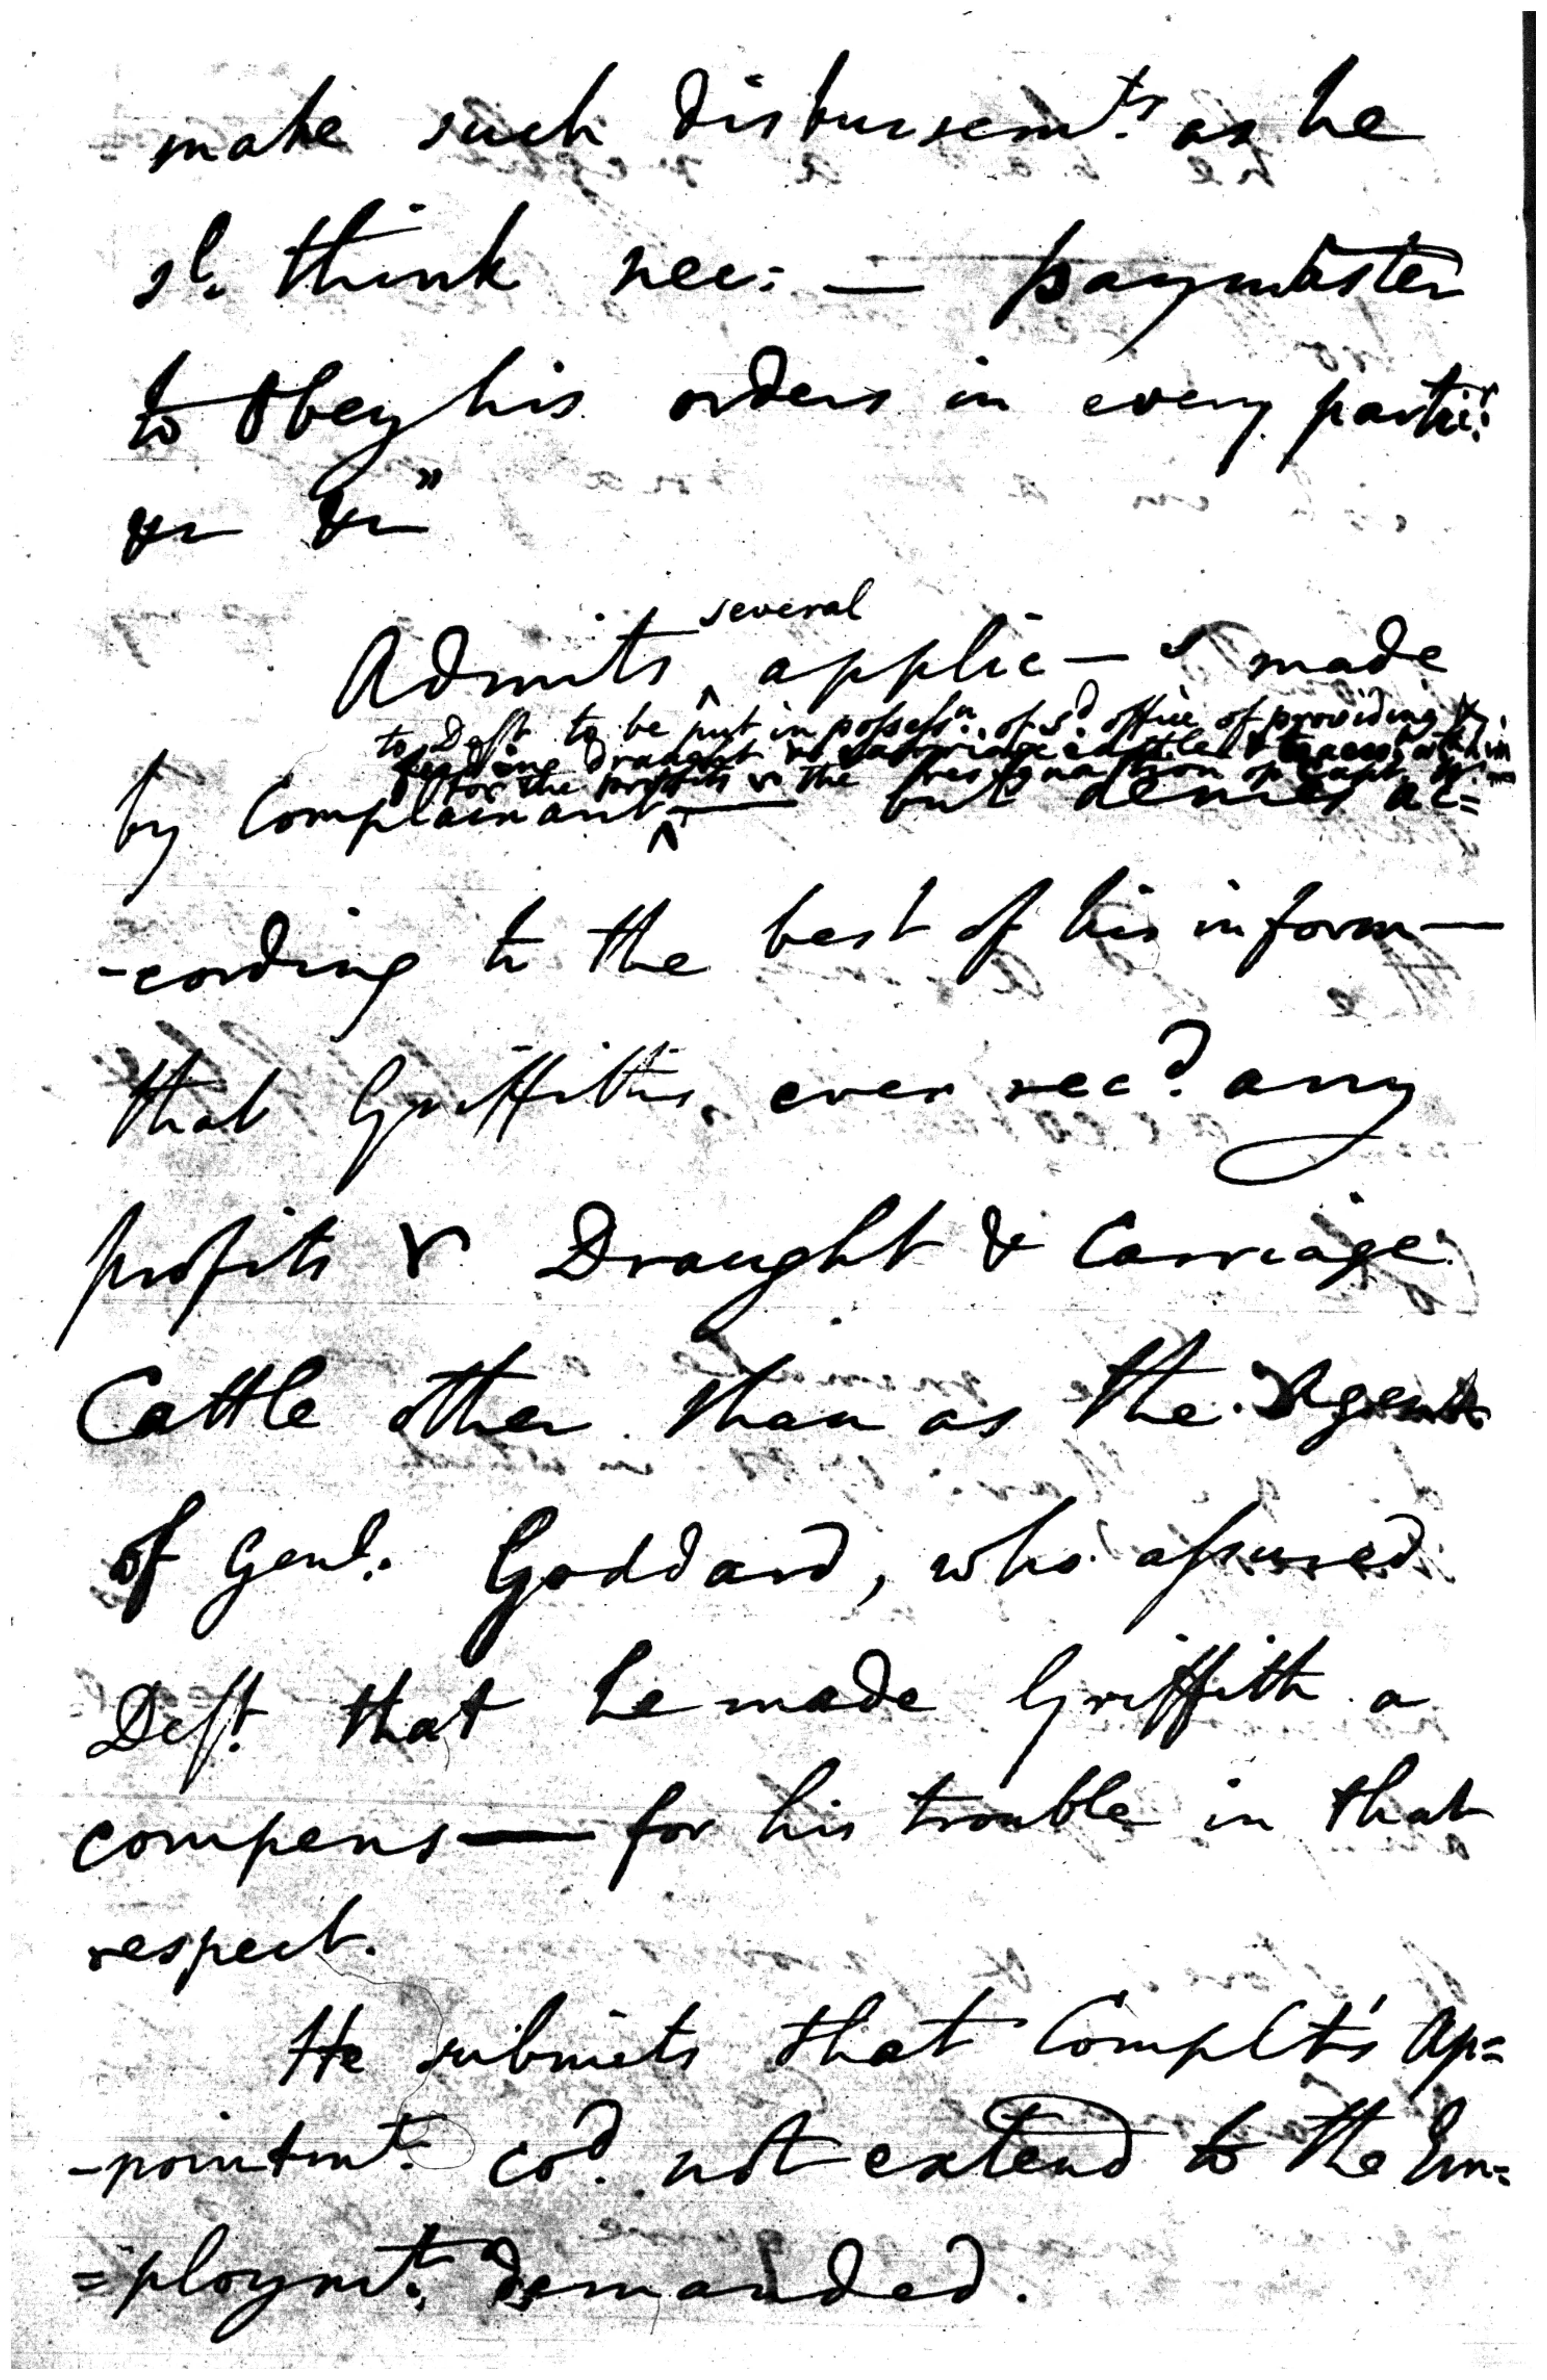 make such disbursemts. as he
sd. think nec: — paymaster
to obey his orders in every partic:r
&c &c"
several
Admits ^ applic—s made
to Deft to be put in possessn. of sd. office of providing &
feeding draught & carriage cattle &
for the profits the resignation of Capt.
by Complainant ^ — but denies ac=
-cording to the best of his inform—
that Griffiths. ever recd. any
profits Draught & Carriage
Cattle other than as the Agent
of Genl. Goddard, who assured
Deft. that he made Griffith a
compens— for his trouble in that
respect.
He submits that Complt's ap=
-pointmt. cod. not extend to the Em=
=ploymt. demanded.